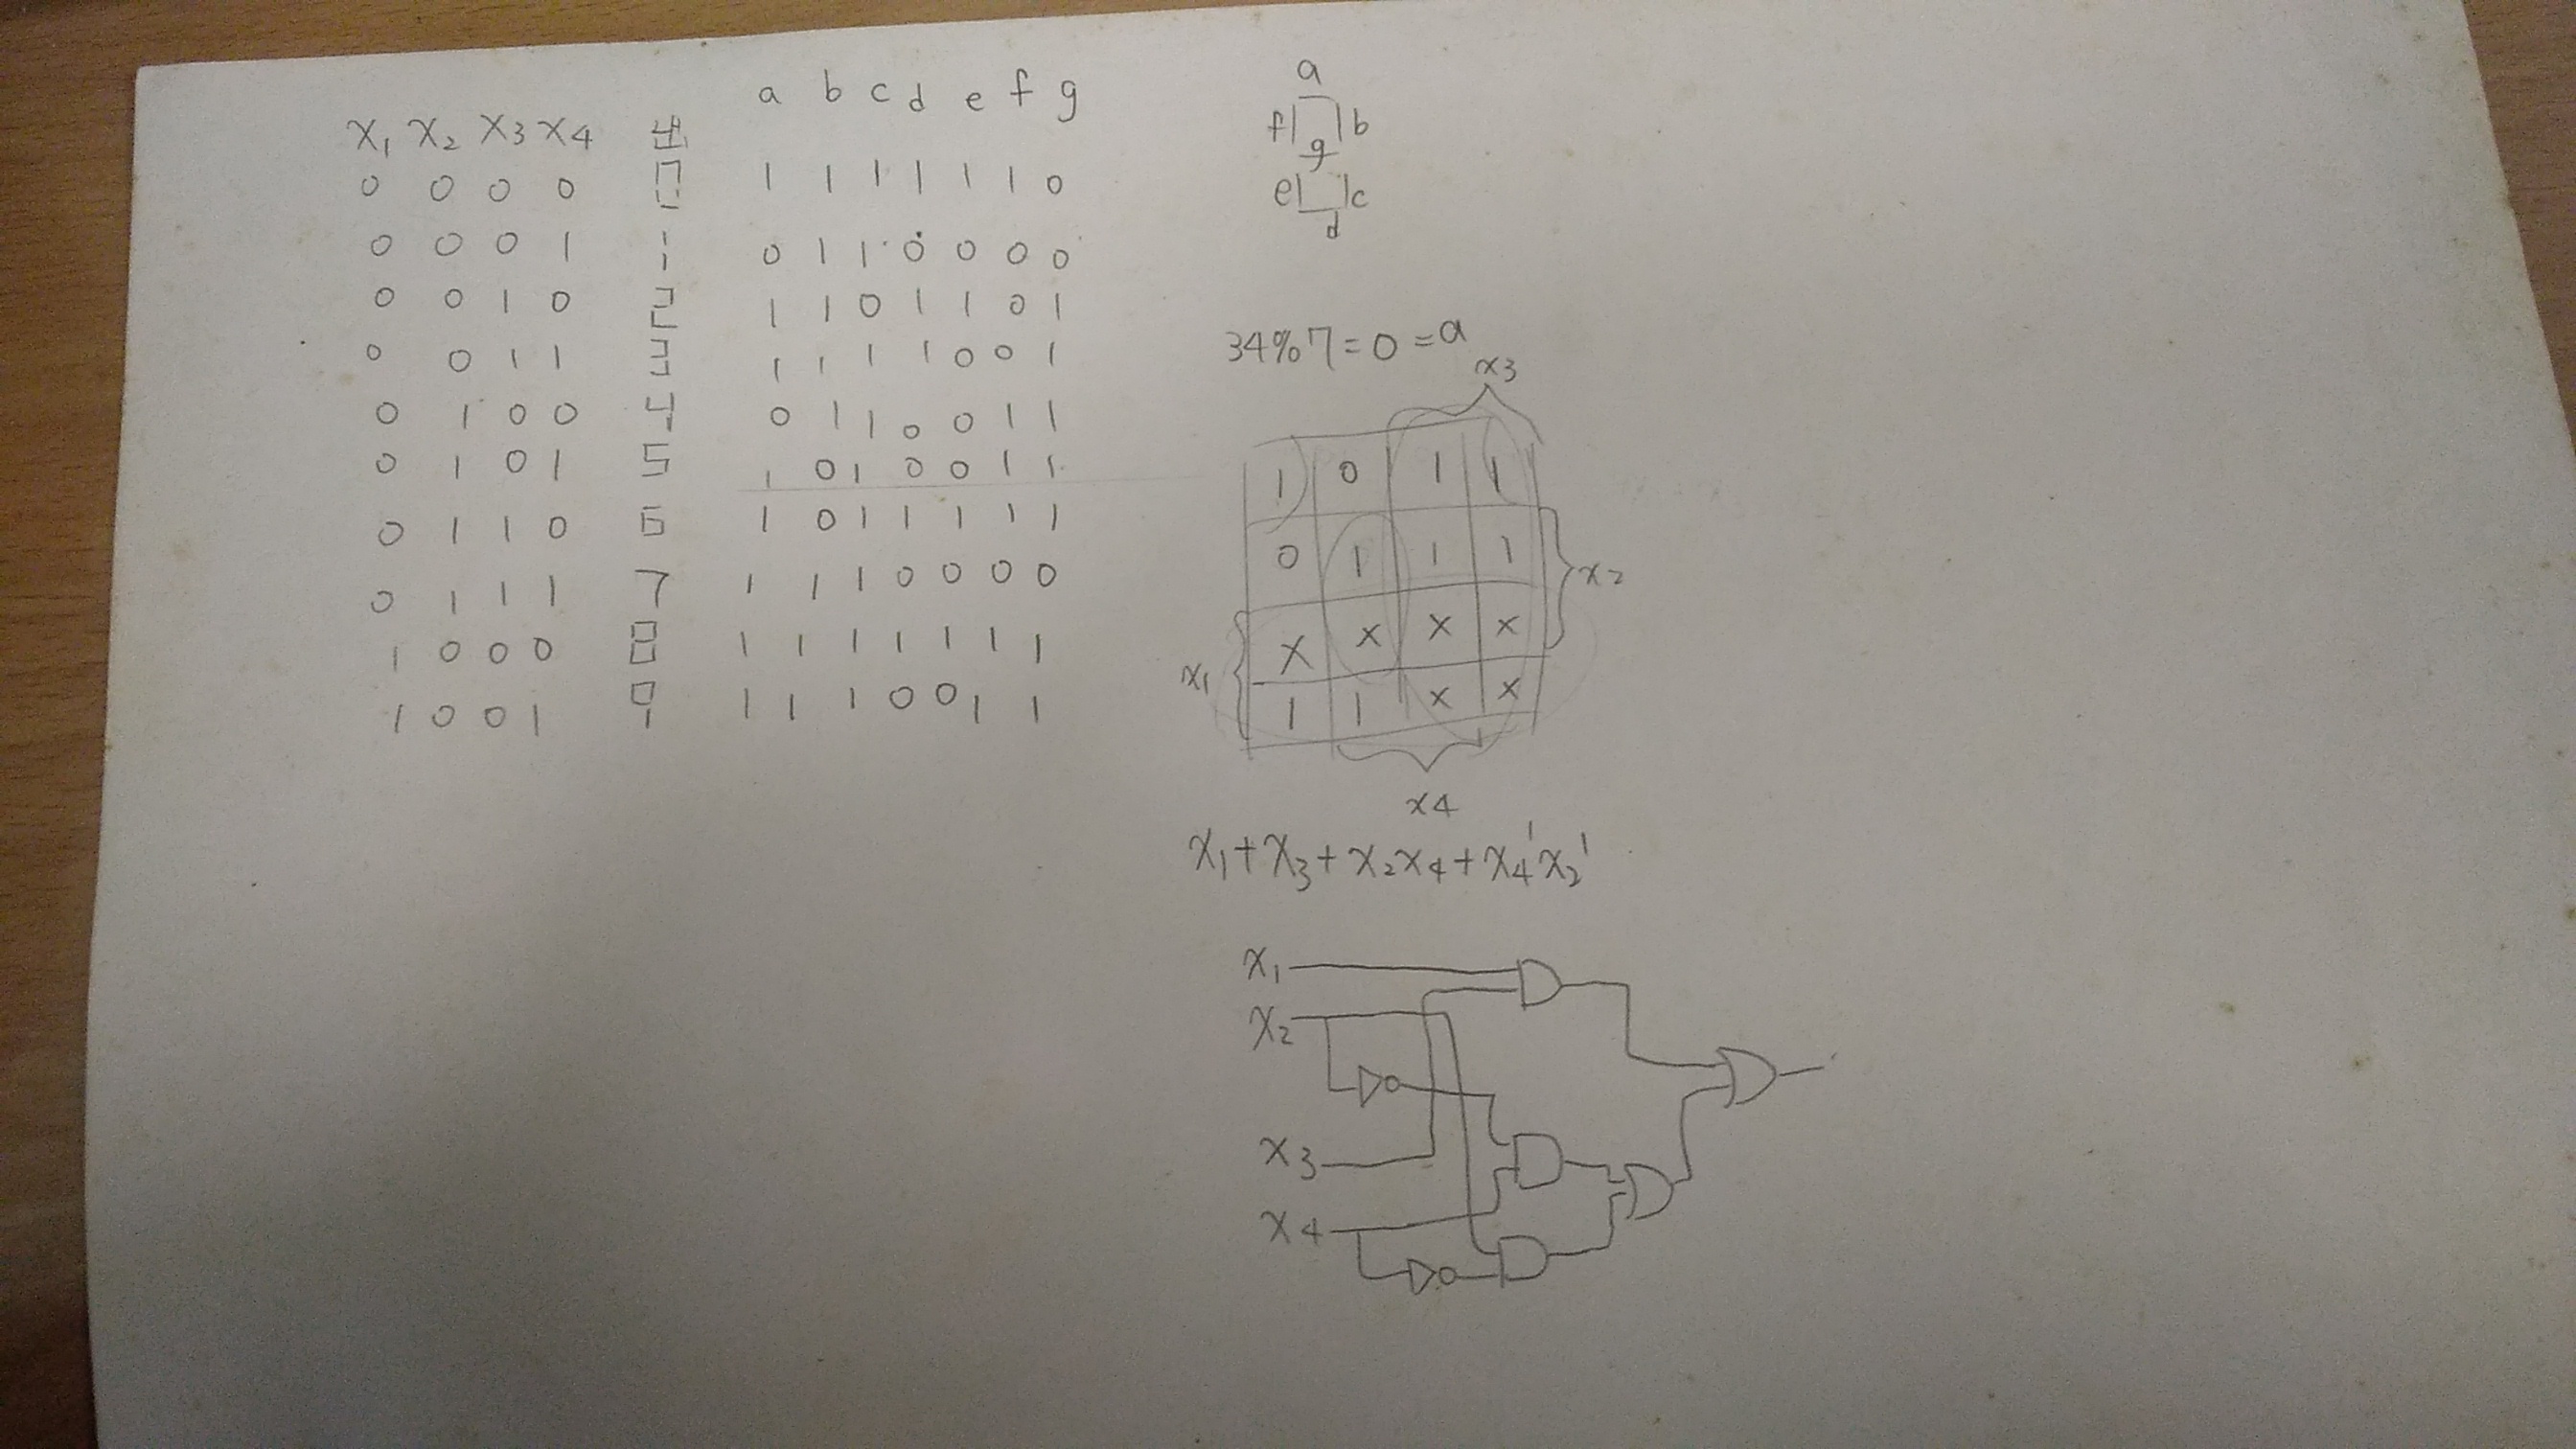 a b c d e f g
x₁ x₂ x₃ x₄
0 0 0 0 0 1 1 1 1 1 1 0
0 0 0 1 1 0 1 1 0 0 0 0
0 0 1 0 2 1 1 0 1 1 0 1
0 0 1 1 3 1 1 1 1 0 0 1
0 1 0 0 4 0 1 1 0 0 1 1
0 1 0 1 5 1 0 1 0 0 1 1
0 1 1 0 6 1 0 1 1 1 1 1
0 1 1 1 7 1 1 1 0 0 0 0
1 0 0 0 8 1 1 1 1 1 1 1
1 0 0 1 9 1 1 1 0 0 1 1
a
f b
g
e c
d
34%7=0=a
x3
1 0 1 1
0 1 1 1
x2
x x x x
x1
1 1 x x
x4
x₁+x₃+x₂x₄+x₄'x₂'
x₁
x₂
x₃
x₄